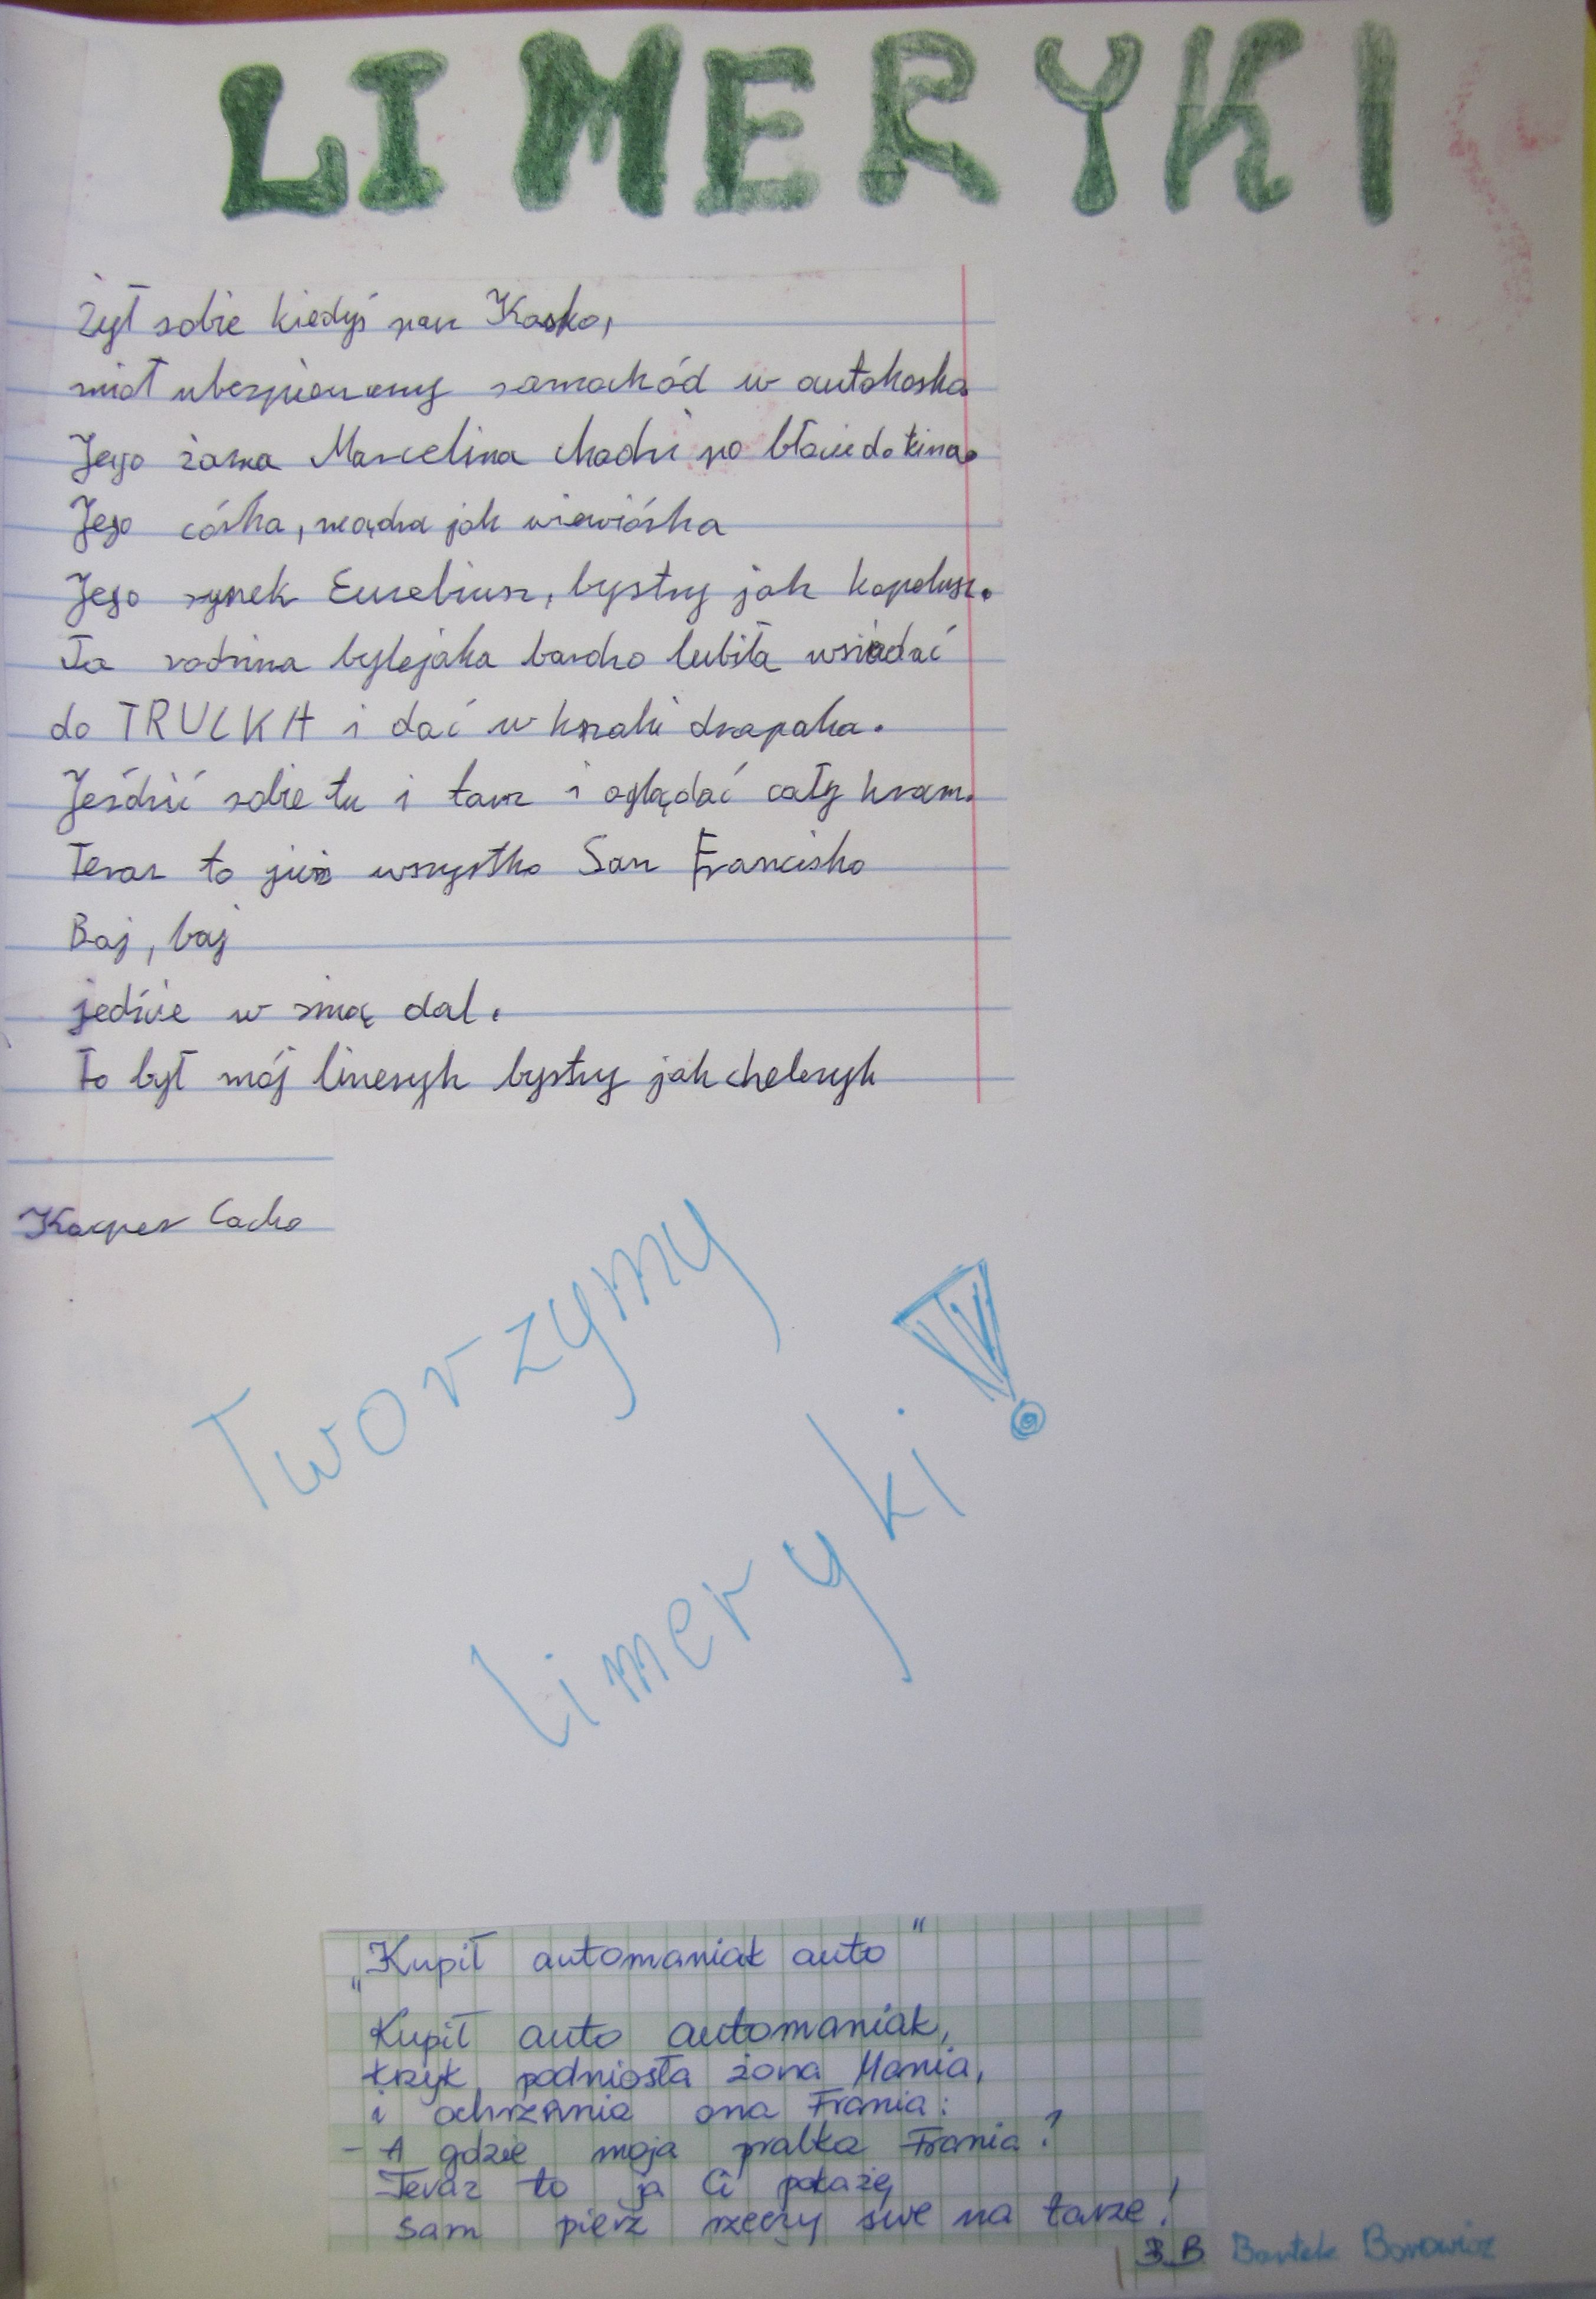 LIMERYKI
Żył sobie kiedyś pan Kasko,
miał ubezpieczony samochód w autokasko.
Jego żona Marcelina chodzi po błocie do kina.
Jego córka, mądra jak wiewiórka
Jego synek Euzebiusz, bystry jak kapelusz.
Ta rodzina bylejaka bardzo lubiła wsiadać
do TRUCKA i dać w krzaki drapaka.
Jeździć sobie tu i tam i oglądać cały kram.
Teraz to już wszystko San Francisko
Baj, baj
jedzie w siną dal.
To był mój limeryk bystry jak choleryk
Kacper Cacko
Tworzymy
limeryki!
„Kupił automaniak auto"
Kupił auto automaniak,
krzyk podniosła żona Mania,
i ochrzania ona Frania:
- A gdzie moja pralka Frania?
Teraz to ja Ci pokażę
sam pierz rzeczy swe na tarze!
3 B Bartek Borowicz